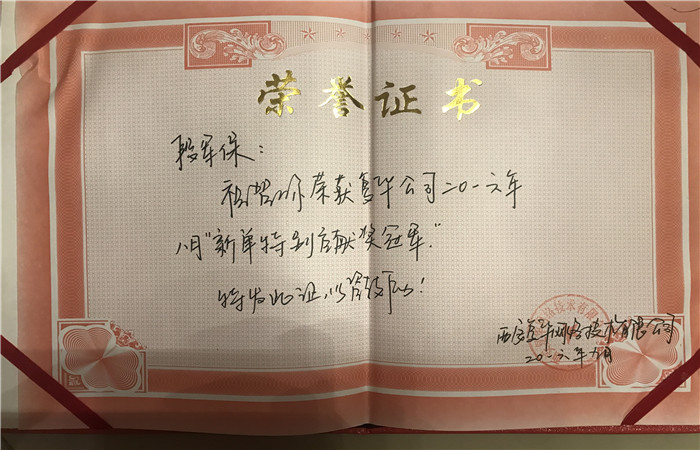 荣誉证书
段军保：
祝贺你荣获复华公司二〇一六年
八月“新单特别贡献奖冠军”
特发此证，以资鼓励！
西安复华网络技术有限公司
二〇一六年九月